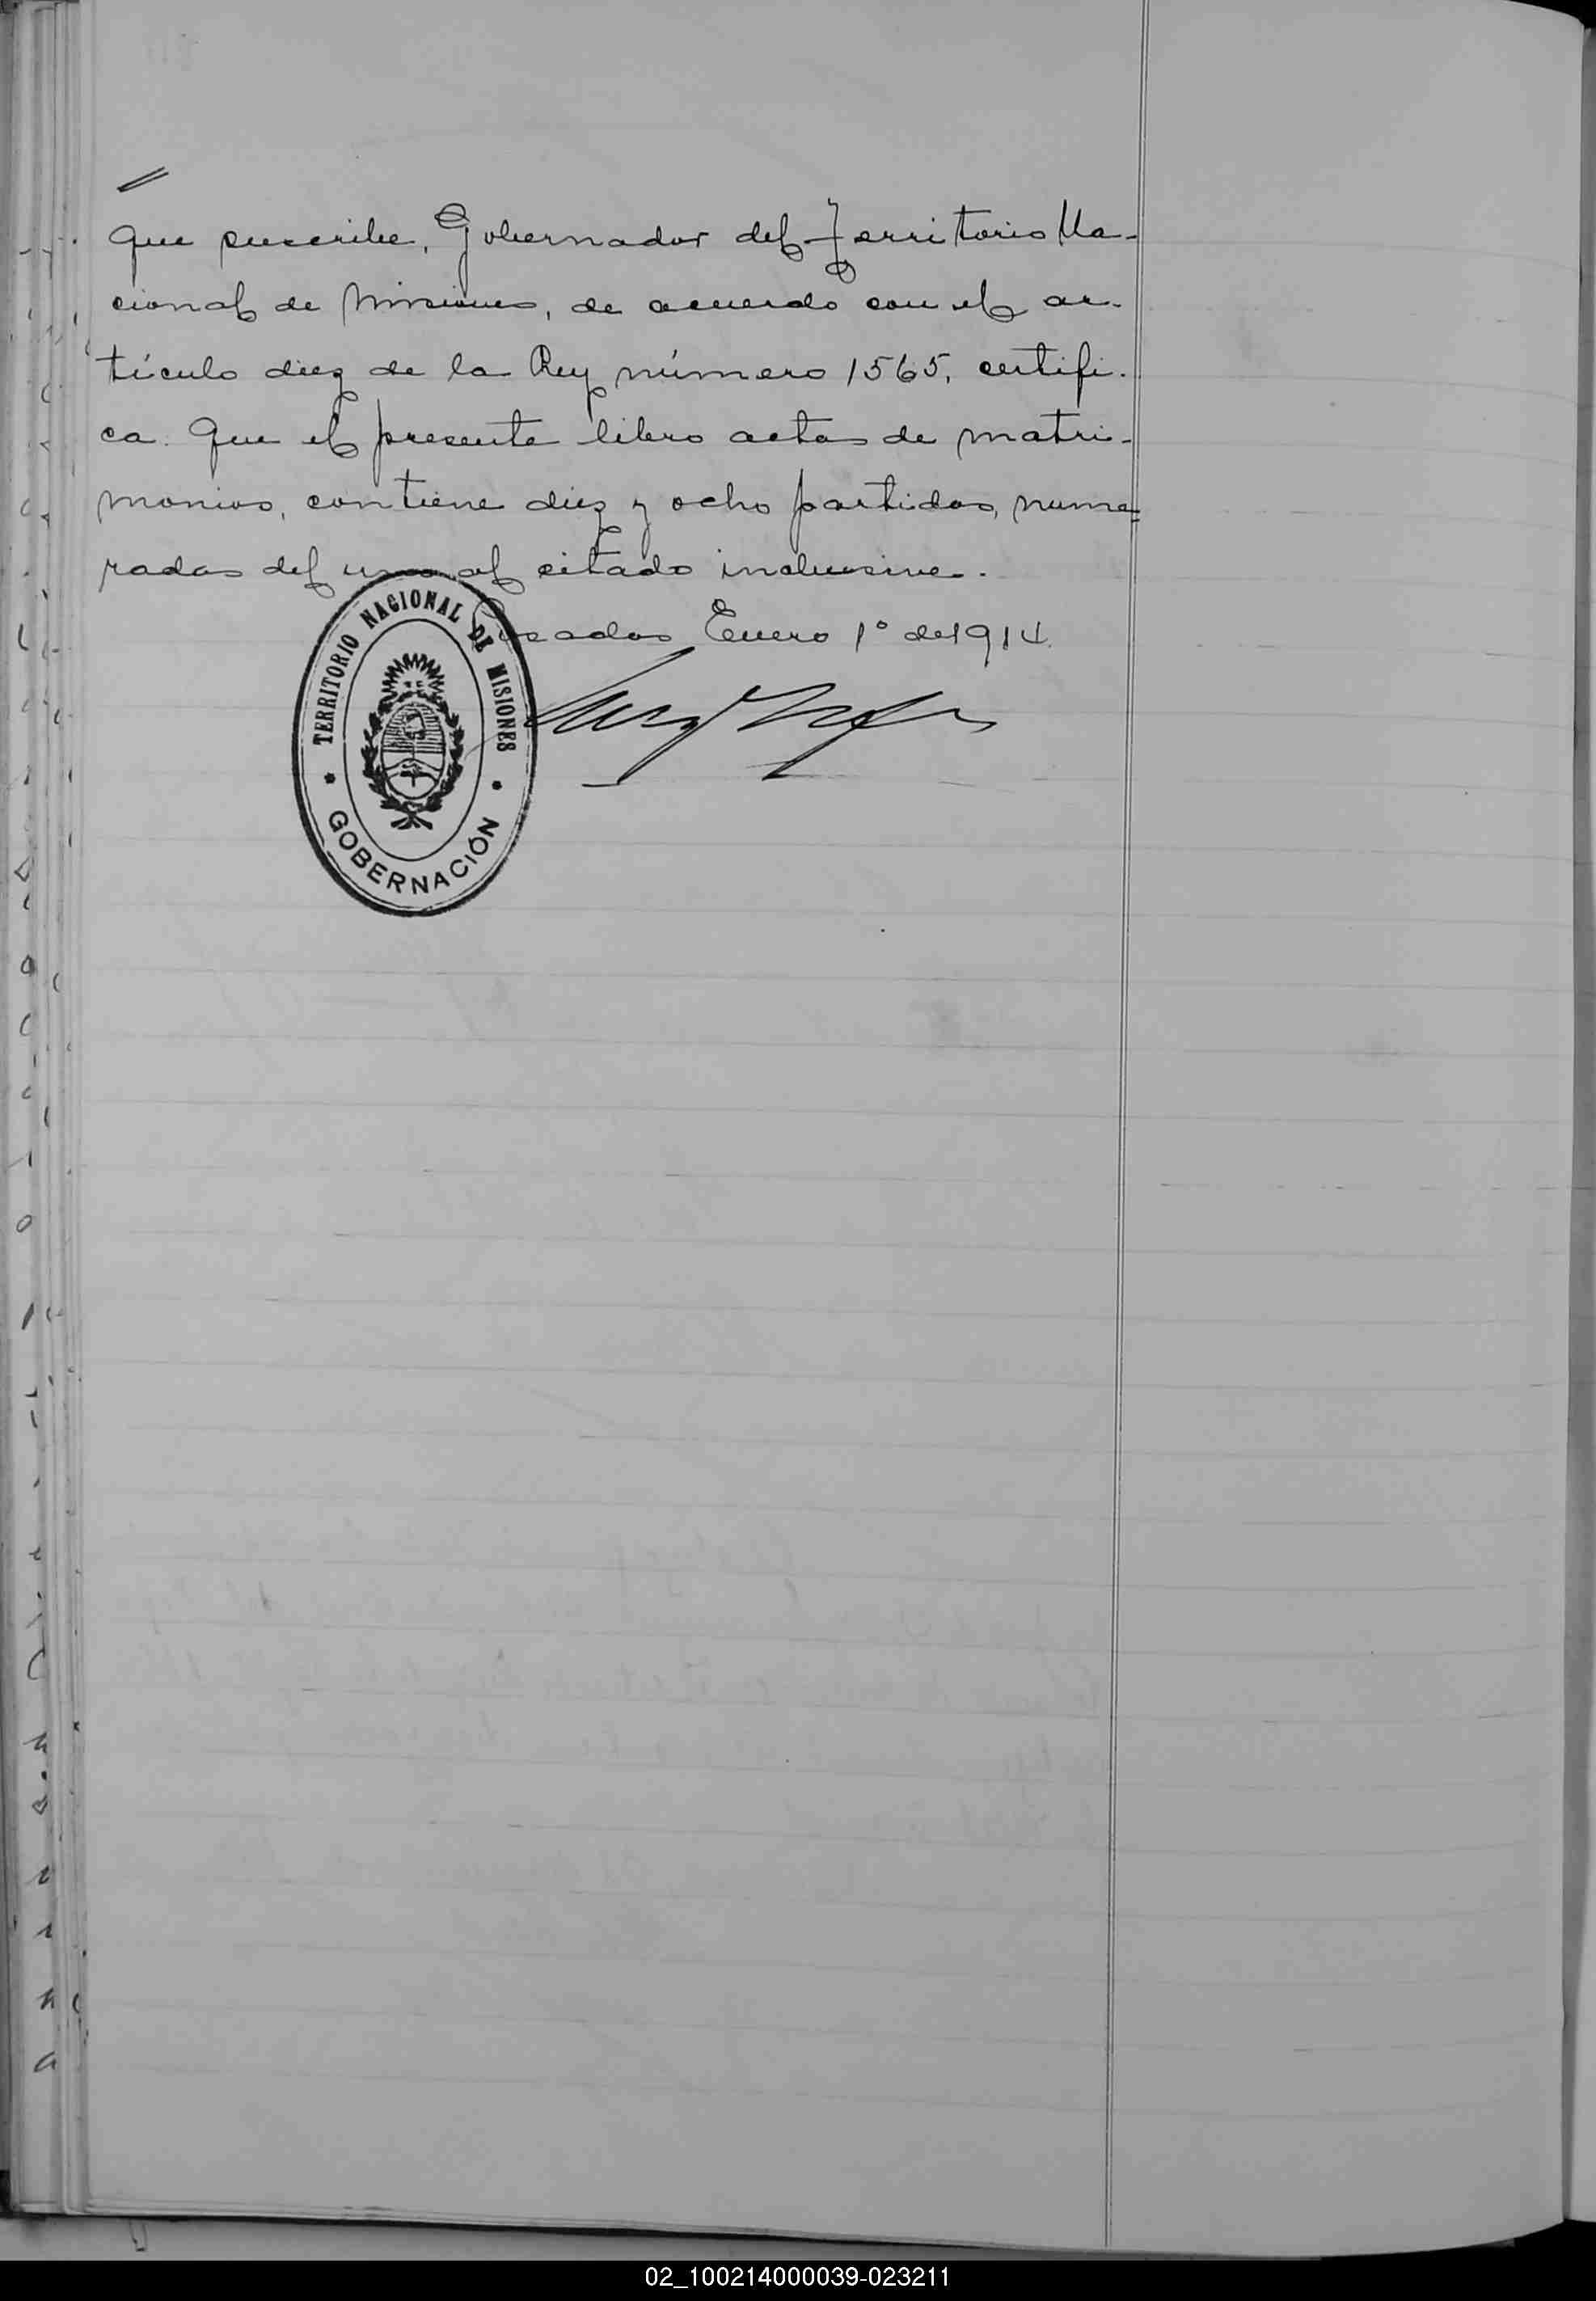 que suscribe, Gobernador del Territorio Na-
cional de Misiones, de acuerdo con el ar-
tículo diez de la Ley número 1565, certifi-
ca: Que el presente libro actas de matri-
monios, contiene diez y ocho partidas, nume-
radas del uno al citado inclusive.
Posadas Enero 1° de 1914.
TERRITORIO NACIONAL DE MISIONES
GOBERNACIÓN
02_100214000039-023211